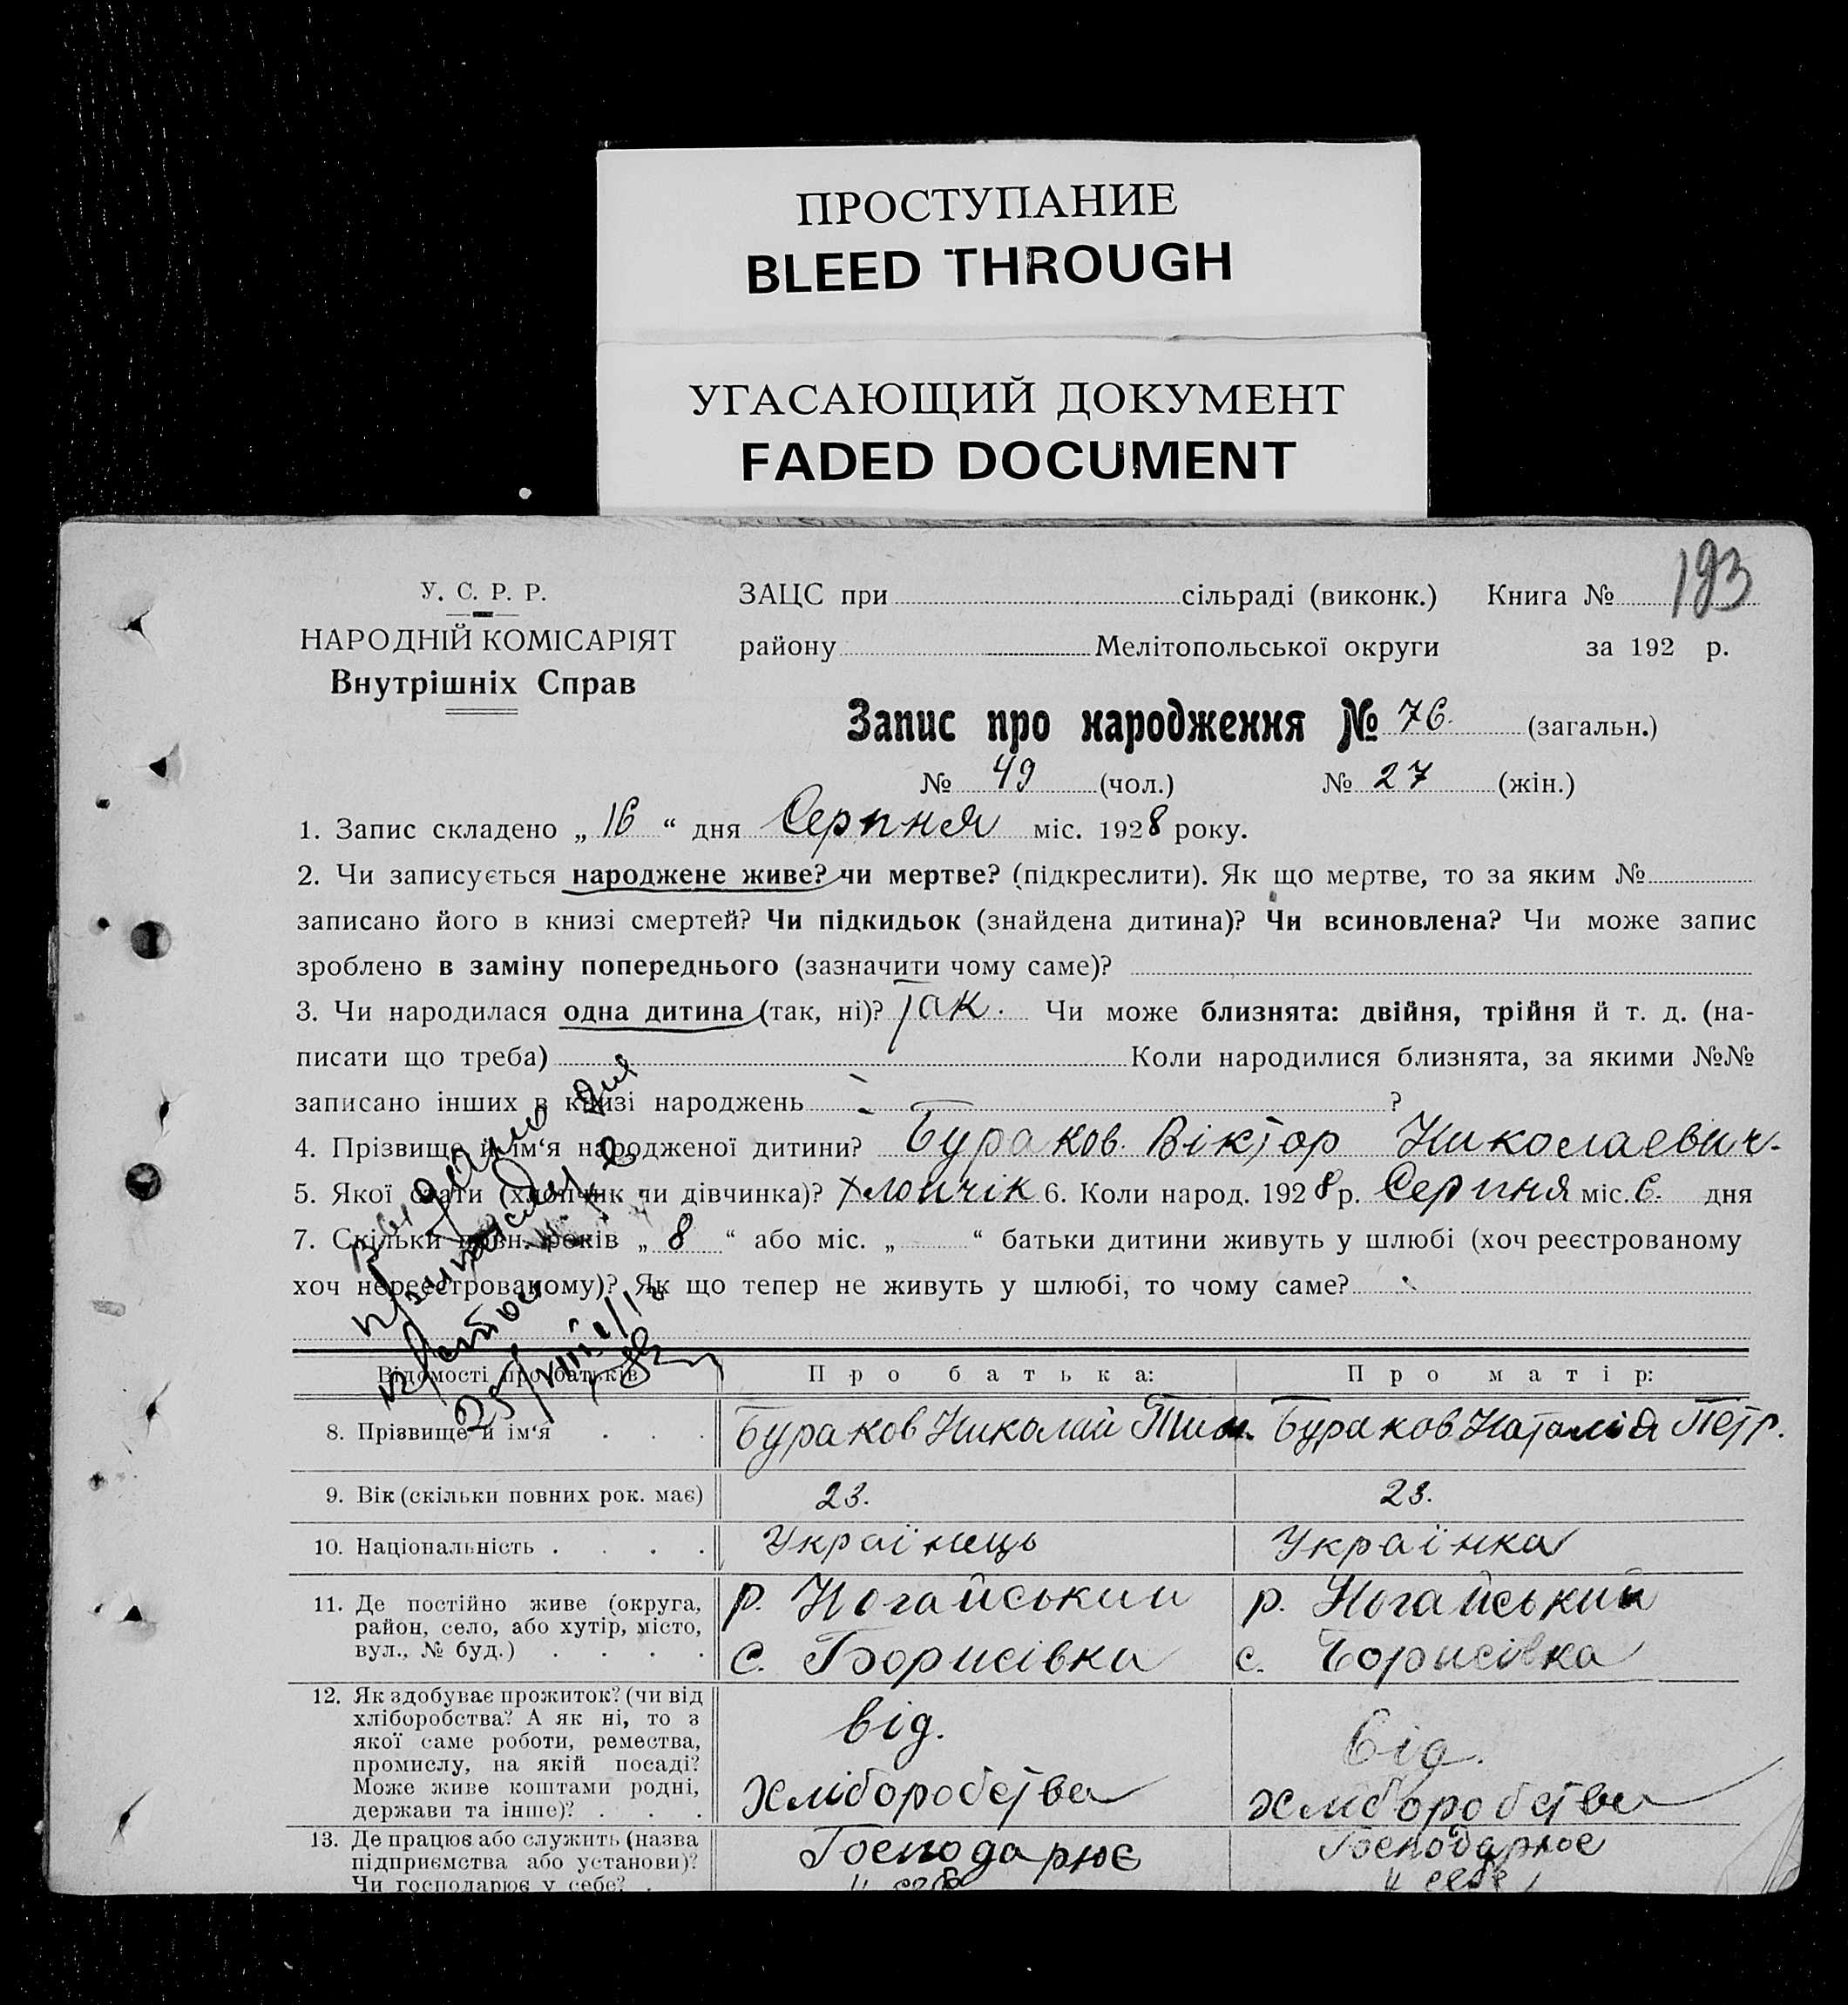 ПРОСТУПАНИЕ
BLEED THROUGH
УГАСАЮЩИЙ ДОКУМЕНТ
FADED DOCUMENT
193
У. С. Р. Р.
НАРОДНІЙ КОМІСАРІЯТ
Внутрішніх Справ
ЗАЦС при сільраді (виконк.) Книга №
району Мелітопольської округи за 192 р.
Запис про народження № 76. (загальн.)
№ 49 (чол.) № 27 (жін.)
1. Запис складено „ 16 “ дня Серпня міс. 1928 року.
2. Чи записується народжене живе? чи мертве? (підкреслити). Як що мертве, то за яким №
записано його в книзі смертей? Чи підкидьок (знайдена дитина)? Чи всиновлена? Чи може запис
зроблено в заміну попереднього (зазначити чому саме)?
3. Чи народилася одна дитина (так, ні)? Так. Чи може близнята: двійня, трійня й т. д. (на-
писати що треба) Коли народилися близнята, за якими №№
записано інших в книзі народжень ?
4. Прізвище й ім‘я народженої дитини? Бураков Віктор Николаевич.
5. Якої стати (хлопчик чи дівчинка)? Хлопчік 6. Коли народ. 1928 р. Серпня міс. 6. дня
7. Скільки повн. років „ 8 “ або міс. „ “ батьки дитини живуть у шлюбі (хоч реєстрованому
хоч нереєстрованому)? Як що тепер не живуть у шлюбі, то чому саме?
Відомості про батьків Про батька: Про матір:
8. Прізвище й ім‘я . . . Бураков Николай Тим. Бураков Наталія Петр.
9. Вік (скільки повних рок. має) 23. 23.
10. Національність . . . . Українець Українка
11. Де постійно живе (округа, район, село, або хутір, місто, вул., № буд.) . . . . р. Ногайський с. Борисівка р. Ногайський с. Борисівка
12. Як здобуває прожиток? (чи від хліборобства? А як ні, то з якої саме роботи, ремества, промислу, на якій посаді? Може живе коштами родні, держави та інше)? . . . від. Хліборобства від. Хліборобства
13. Де працює або служить (назва підприємства або установи)? Чи господарює у себе? . Господарює у себе Господарює у себе